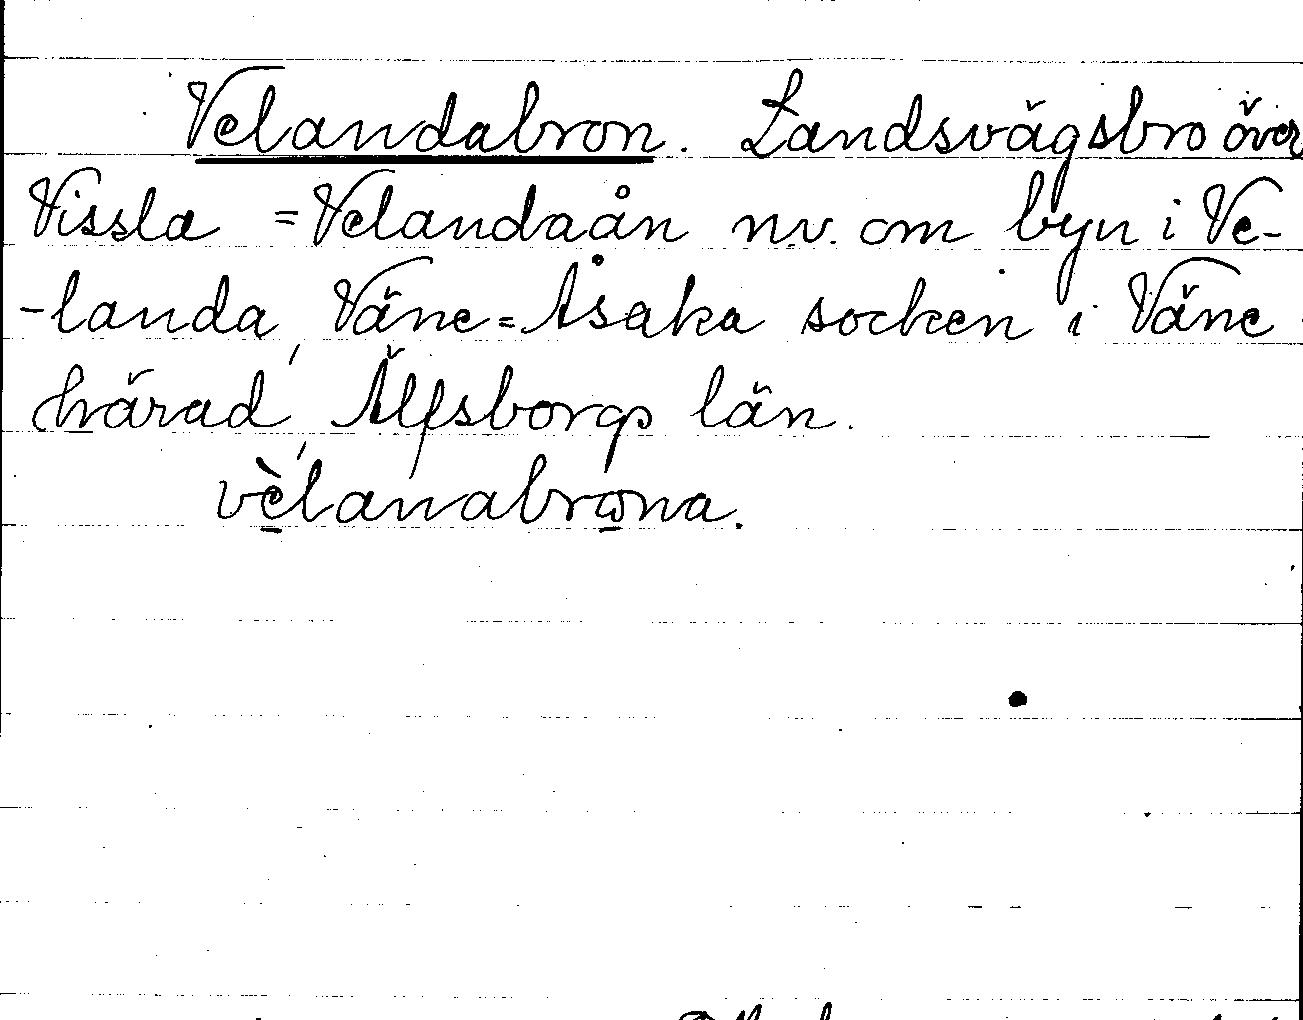 Velandabron. Landsvägsbro över
Vissla = Velandaån n.v. om byn i Ve-
-landa, Väne=Åsaka socken i Väne
härad, Älfsborgs län.
vèlanabrωna.